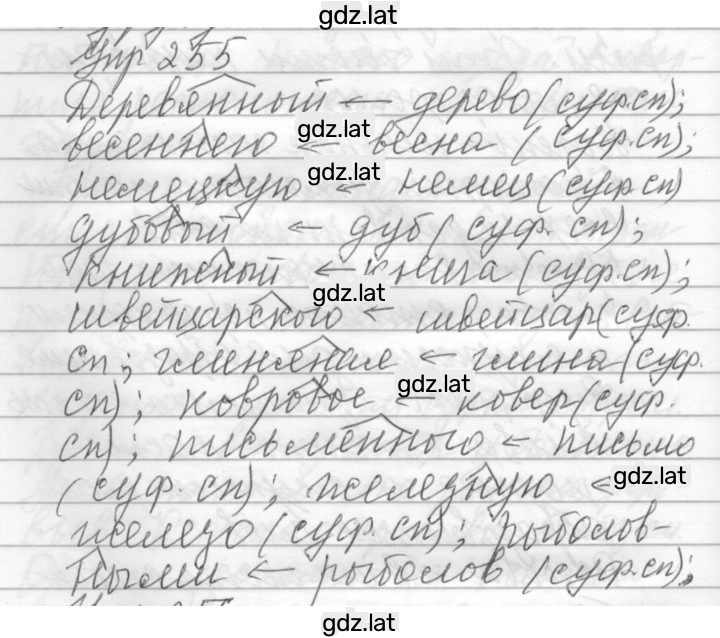 gdz.lat
Упр 255
Деревянный ← дерево (суф.сп);
gdz.lat
весеннего ← весна (суф.сп);
gdz.lat
немецкую ← немец (суф.сп)
дубовый ← дуб (суф. сп);
книжный ← книга (суф.сп);
gdz.lat
швейцарского ← швейцар (суф.
сп; глиняная ← глина (суф.
gdz.lat
сп); ковровое ← ковер (суф.
сп); письменного ← письмо
gdz.lat
(суф. сп); железную ←
железо (суф.сп); рыболов-
ными ← рыболов (суф.сп);
gdz.lat